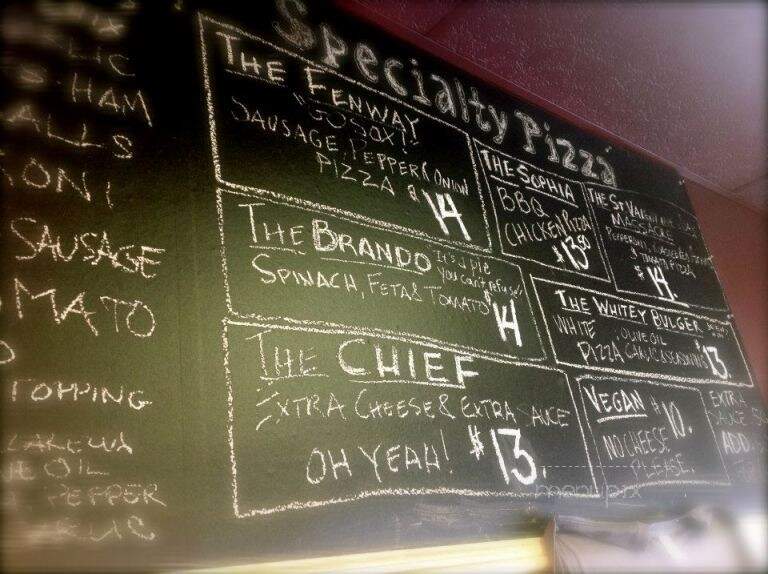 HAM
SAUSAGE
TOPPING
OIL
PEPPER
Specialty Pizza
THE FENWAY
"GO SOX!"
SAUSAGE, PEPPER & ONION
PIZZA $14
THE SOPHIA
BBQ
CHICKEN PIZZA
$13.50
MASSACRE
$14.
THE BRANDO "It's a pie
you can't refuse"
SPINACH, FETA & TOMATO $14
THE WHITEY BULGER
WHITE OLIVE OIL
PIZZA, GARLIC & SEASONING $13.
THE CHIEF
EXTRA CHEESE & EXTRA SAUCE
OH YEAH! $13.
VEGAN $10.
NO CHEESE
PLEASE.
EXTRA
ADD